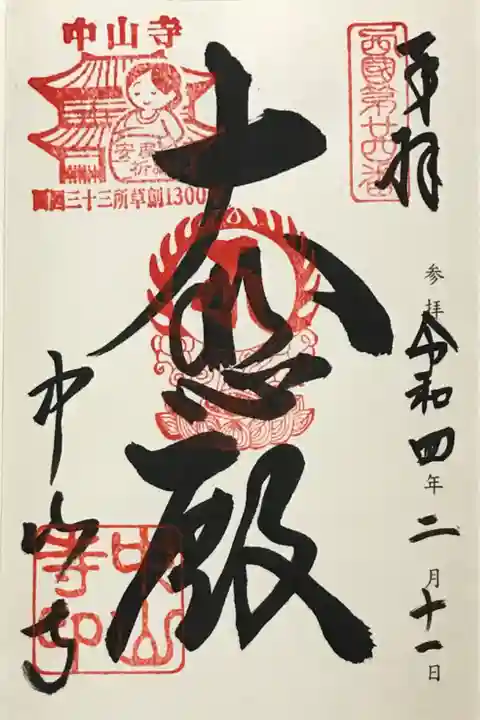 奉拝
西國第廿四番
参拝 令和四年二月十一日
大悲殿
中山寺
安産
祈
西国三十三所草創1300
中山寺
中山寺印